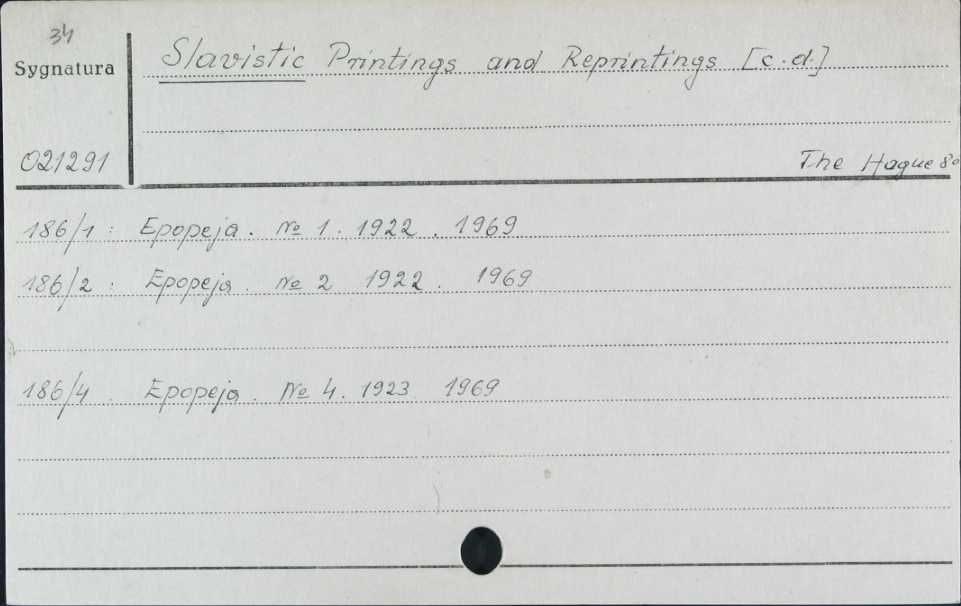 34
Sygnatura
Slavistic Printings and Reprintings [c.d.]
021291
The Hague 8°
186/1 : Epopeja. № 1. 1922. 1969
186/2 : Epopeja. № 2 1922. 1969
186/4 Epopeja. № 4. 1923 1969